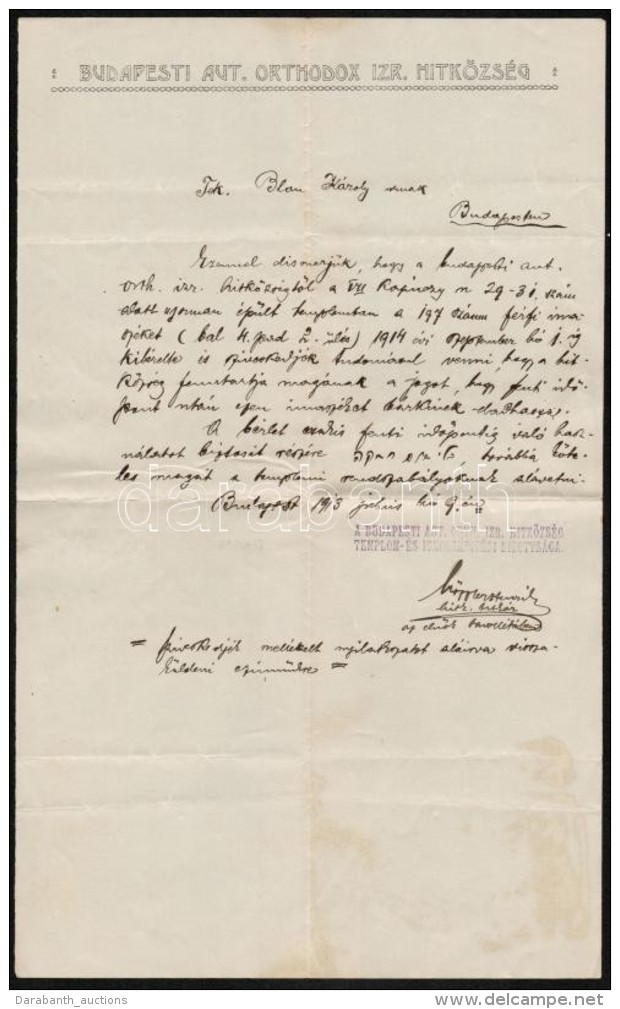 BUDAPESTI AUT. ORTHODOX IZR. HITKÖZSÉG
Tek. Blau Károly urnak
Budapesten
Ezennel elismerjük, hogy a budapesti aut.
orth. izr. hitközségtől a VII Kazinczy u 29-31. szám
alatt ujonnan épült templomban a 197 számu férfi ima
széket (bal 4. pad 2. ülés) 1914 évi szeptember hó 1. ig
kibérelte is sziveskedjék tudomásul venni, hogy a hit-
község fenntartja magának a jogot, hogy fenti idő-
pont után ezen imaszéket bárkinek eladhassa.
A bérlet csakis fenti időpontig való hasz-
nálatot biztosit részére továbbá köte-
les magát a templomi rendszabályoknak alávetni.
Budapest 1913 julius hó 9. én
A BUDAPESTI AUT. ORTH. IZR. HITKÖZSÉG
TEMPLOM- ÉS BIZOTTSÁGA.
hitk. titkár
az elnök
= sziveskedjék mellékelt nyilatkozatot aláirva vissza-
küldeni czimünkre =
darabanth
Darabanth_auctions
www.delcampe.net